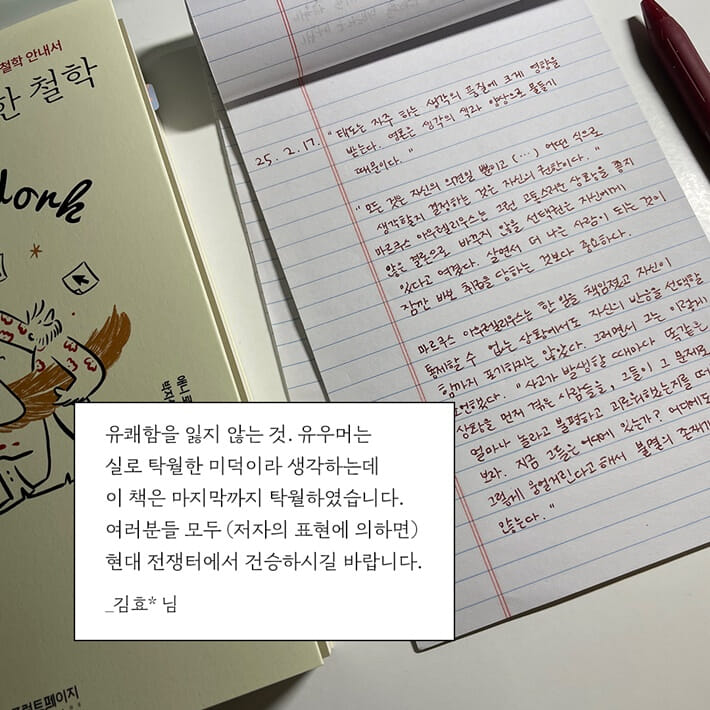 철학 안내서
한 철학
애니 로
프런트페이지
25. 2. 17. "태도는 자주 하는 생각의 품질에 크게 영향을
받는다. 영혼은 생각의 색과 양상으로 물들기
때문이다."
"모든 것은 자신의 의견일 뿐이고 (…) 어떤 식으로
생각할지 결정하는 것은 자신의 권한이다."
마르쿠스 아우렐리우스는 그런 고통스러운 상황을 좋지
않은 결론으로 바꾸지 않을 선택권은 자신에게
있다고 여겼다. 살면서 더 나은 사람이 되는 것이
잠깐 바보 취급을 당하는 것보다 중요하다.
마르쿠스 아우렐리우스는 한 일을 책임졌고 자신이
통제할 수 없는 상황에서도 자신의 반응을 선택할
힘까지 포기하지는 않았다. 그러면서 그는 이렇게
조언했다. "사고가 발생할 때마다 똑같은
상황을 먼저 겪은 사람들을, 그들이 그 문제로
얼마나 놀라고 불평하고 괴로워했는지를 떠
보라. 지금 그들은 어디에 있는가? 어디에도
그렇게 웅얼거린다고 해서 불멸의 존재가
않는다."
유쾌함을 잃지 않는 것. 유우머는
실로 탁월한 미덕이라 생각하는데
이 책은 마지막까지 탁월하였습니다.
여러분들 모두 (저자의 표현에 의하면)
현대 전쟁터에서 건승하시길 바랍니다.
_김효* 님